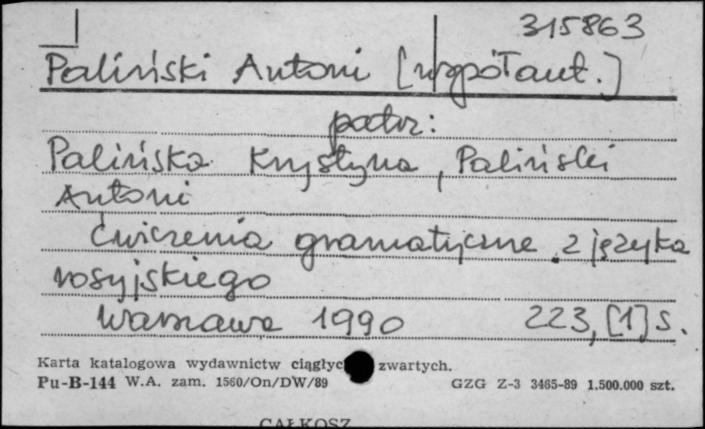 315863
Paliński Antoni [współaut.]
patrz:
Palińska Krystyna, Paliński
Antoni
Ćwiczenia gramatyczne z języka
rosyjskiego
Warszawa 1990 223, [1] s.
Karta katalogowa wydawnictw ciągłyc zwartych.
Pu-B-144 W.A. zam. 1560/On/DW/89 GZG Z-3 3465-89 1.500.000 szt.